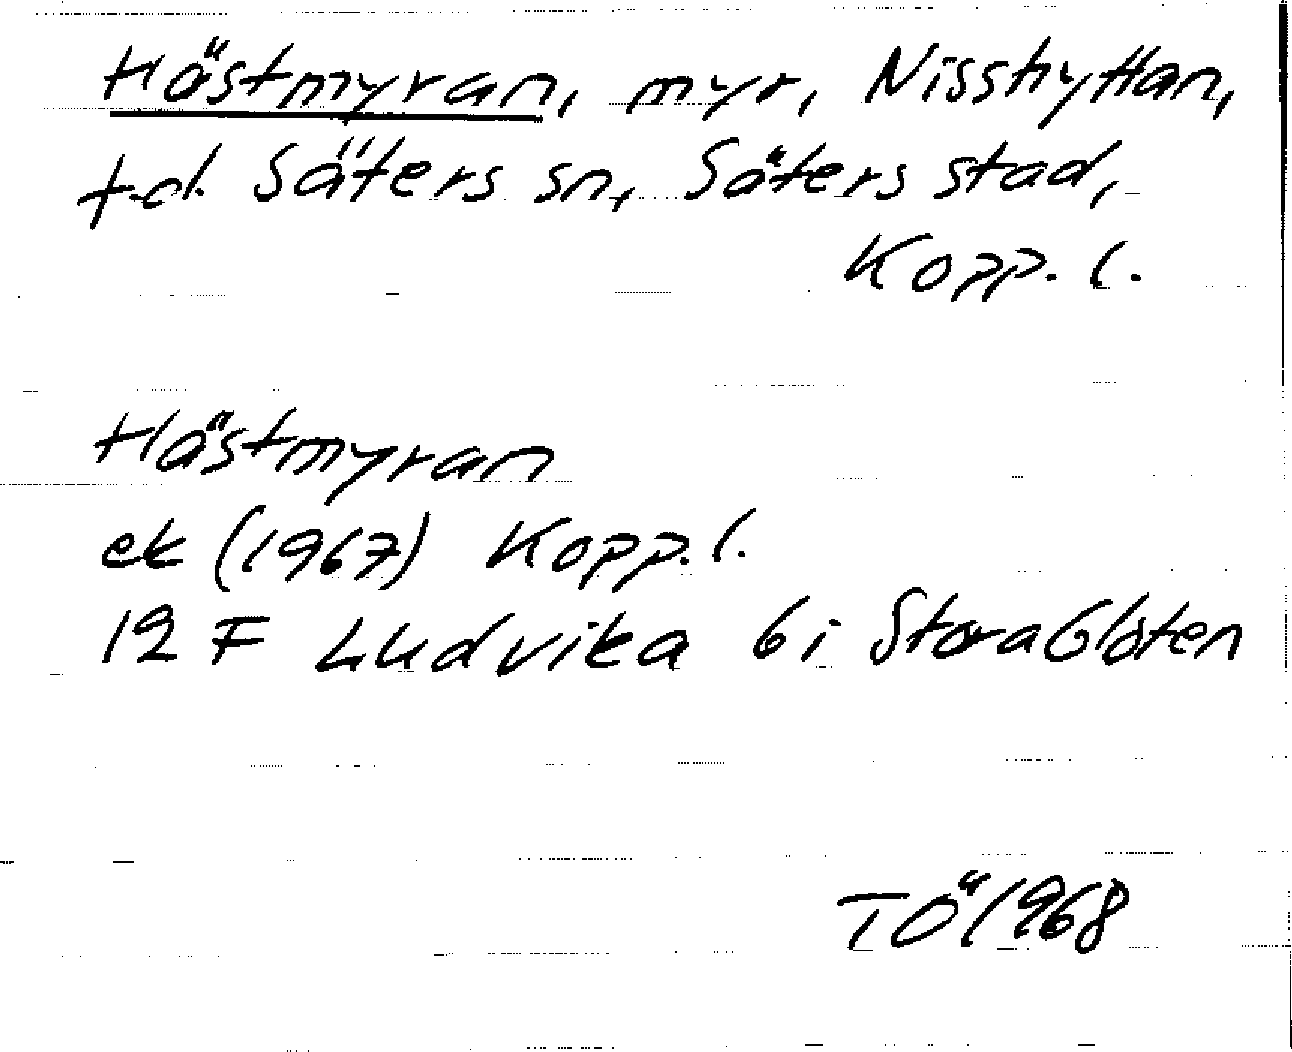 Hästmyran, myr, Nisshyttan,
f.d. Säters sn, Säters stad,
Kopp. l.
Hästmyran
ek (1967) Kopp. l.
12 F Ludvika 6 i Stora Gloten
TÖ 1968